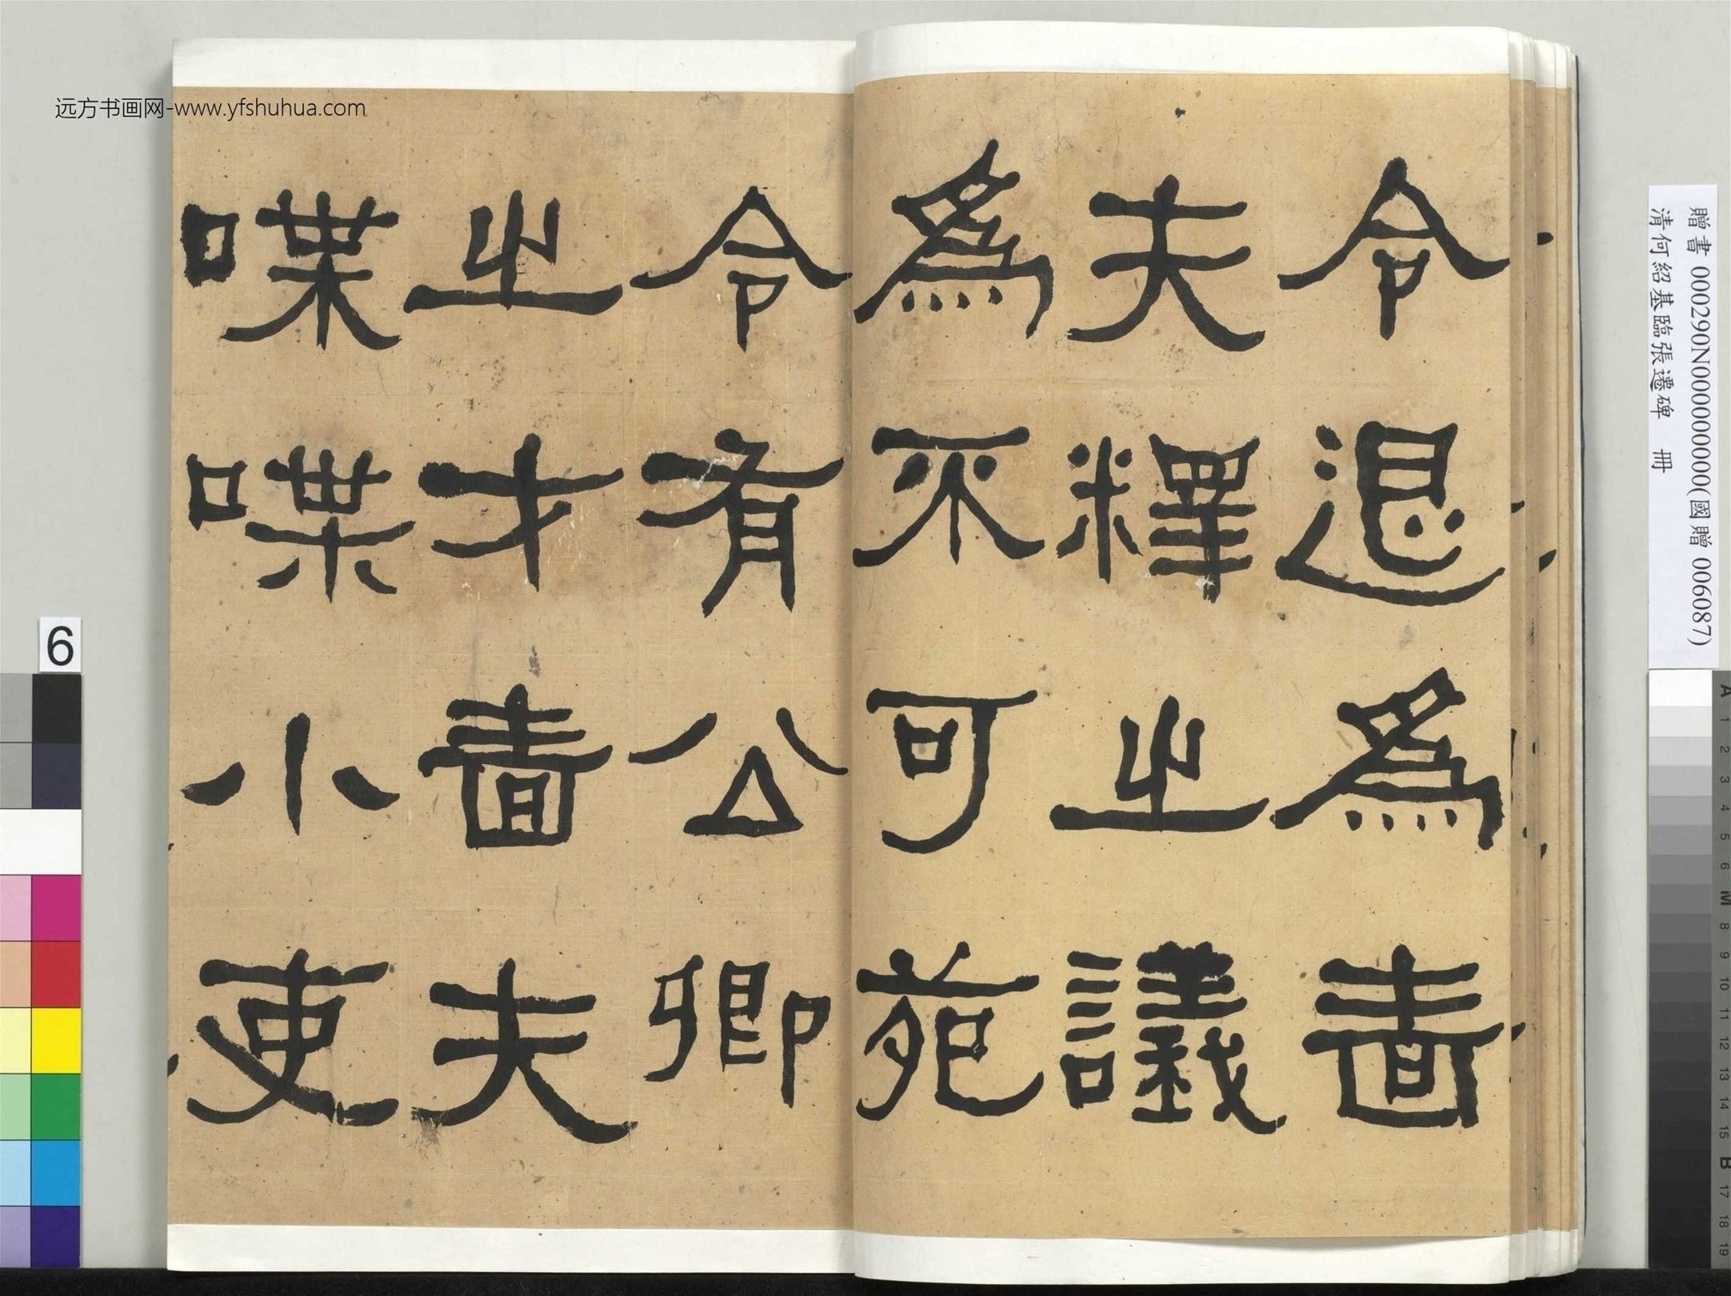 令退爲嗇
夫釋之議
爲不可苑
令有公卿
之才嗇夫
喋喋小吏
远方书画网-www.yfshuhua.com
贈書 000290N000000000(國贈 006087)
清何紹基臨張遷碑 冊
6
A 1 2 3 4 5 6 M 8 9 10 11 12 13 14 15 B 17 18 19